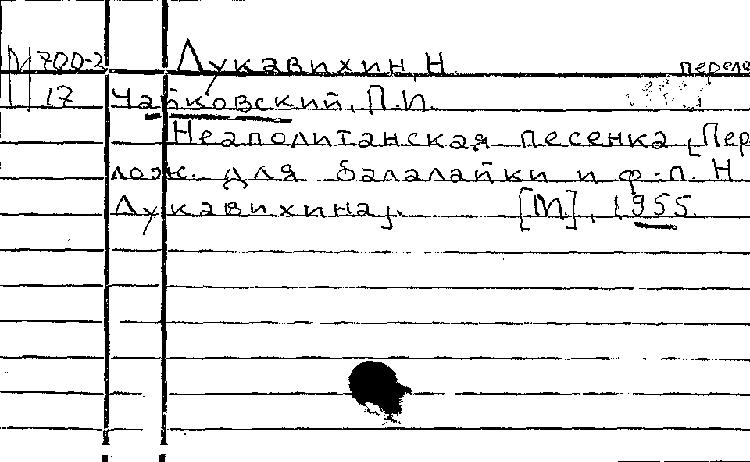 М 700-2 Лукавихин, Н. перело
17 Чайковский, П.И.
Неаполитанская песенка [Пер
лож. для балалайки и ф.-п. Н
Лукавихина]. [М], 1955.